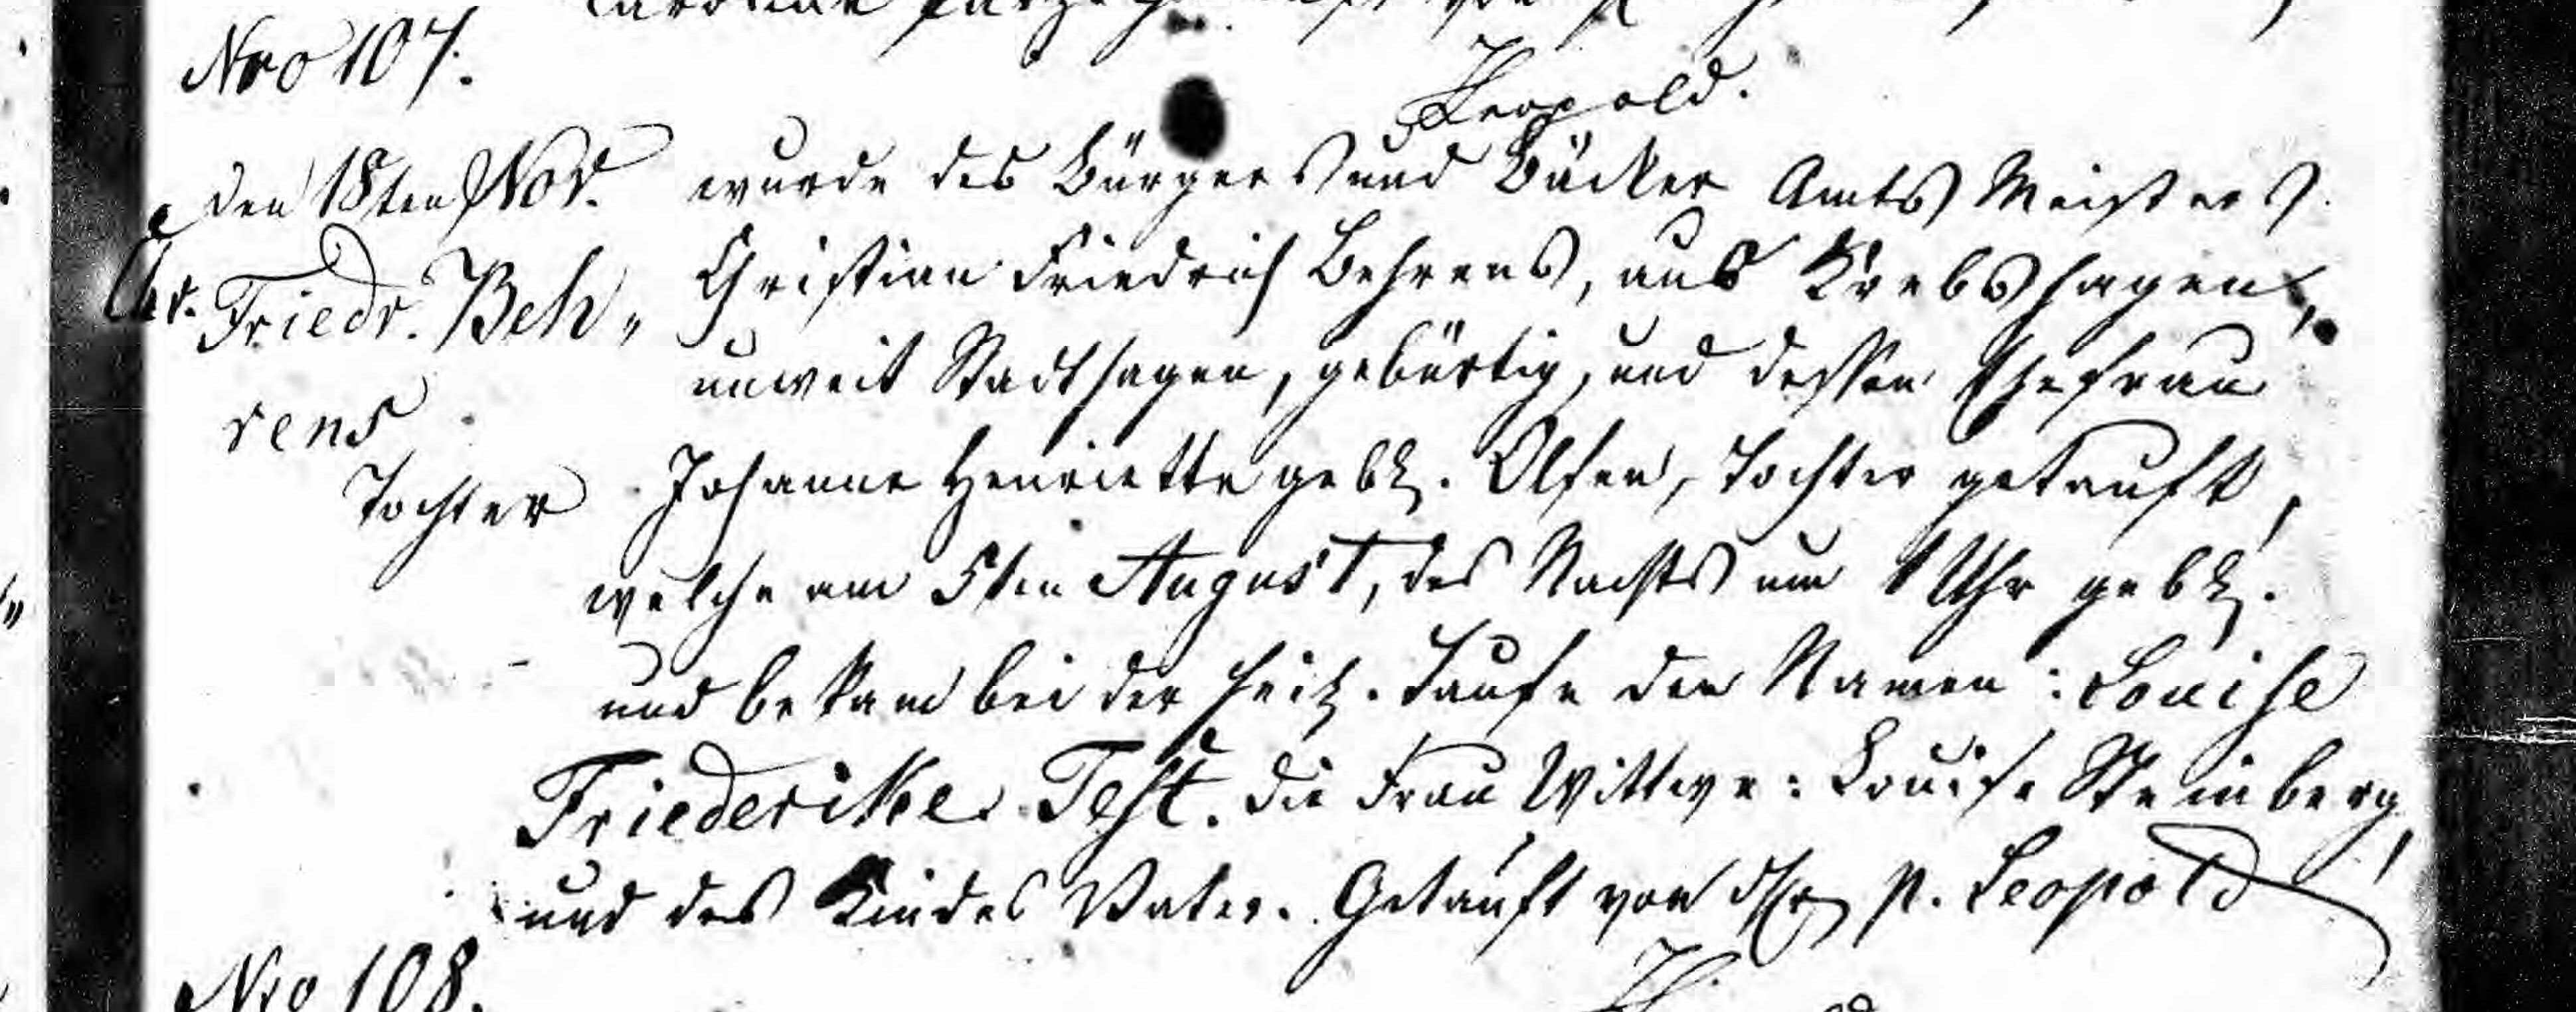 Nro 107.
Leopold.
den 18ten Nov. wurde des Bürgers und Bäcker Amts Meisters
Chr. Friedr. Beh„ Christian Friedrich Behrens, aus Krebshagen,
unweit Stadthagen, gebürtig, und dessen Ehefrau
rens
Tochter Johanne Henriette geb. Olsen, Tochter getauft,
welche am 5ten August, des Nachts um 1 Uhr geb.
und bekam bei der heil. Taufe den Namen: Louise
Friederike. Test. die Frau Wittwe: Louise Steinberg,
und des Kindes Vater. Getauft von H P. Leopold
Nro 108.